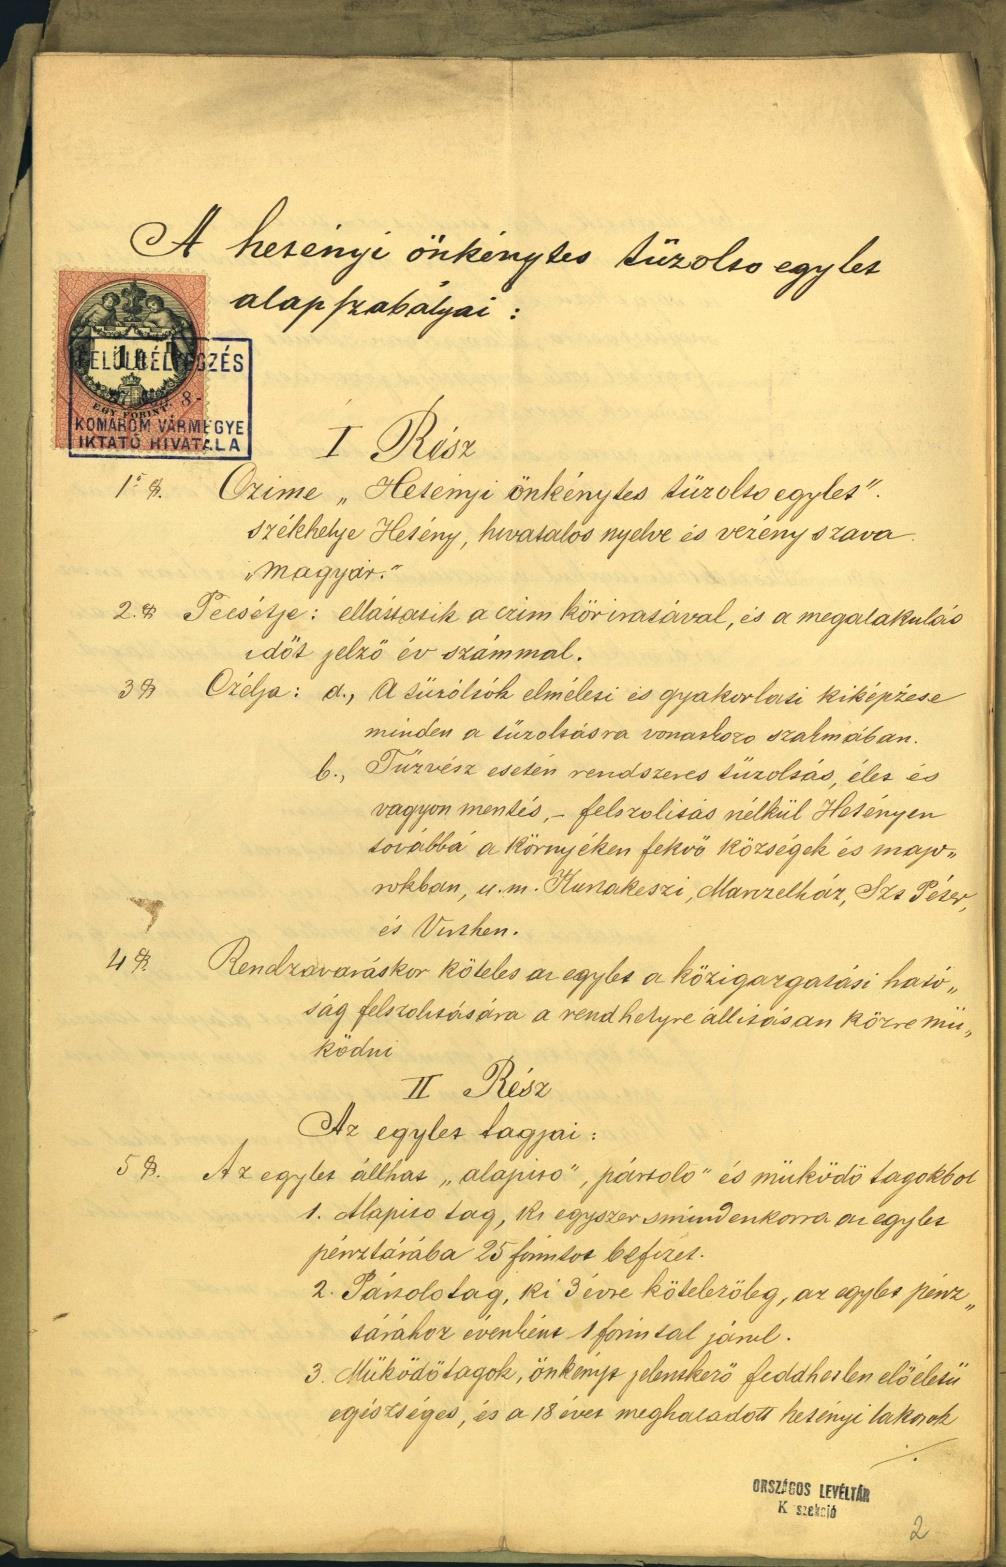 A hetényi önkénytes tüzolto egylet
alapszabályai:
1
EGY FORINT
8-
FELÜLBÉLYEGZÉS
KOMÁROM VÁRMEGYE
IKTATÓ HIVATALA
I Rész
1 §. Czime „Hetényi önkénytes tüzolto egylet".
székhelye Hetény, hivatalos nyelve és vezény szava
„magyar."
2. § Pecsétje: ellástatik a czim köriratával, és a megalakulás
időt jelző év számmal.
3 § Czélja: a., A tüzóltók elméleti és gyakorlati kiképzése
minden a tüzoltásra vonatkozo szakmában.
b., Tüzvész esetén rendszeres tüzoltás, élet és
vagyon mentés, – felszolitás nélkül Hetényen
továbbá a környéken fekvő községek és majo„
rokban, u.m. Kurtakeszi, Manzelház, Szt Péter,
és Virthen.
4 §. Rendzavaráskor köteles az egylet a közigazgatási ható„
ság felszolitására a rend helyre állitásán közre mü„
ködni
II Rész
Az egylet tagjai:
5 §. Az egylet állhat „alapito", pártoló" és müködö tagokbol
1. Alapito tag, ki egyszersmindenkorra az egylet
pénztárába 25 forintot befizet.
2. Pártolo tag, ki 3 évre kötelezöleg, az egylet pénz„
tárához évenként 1 forintal járul.
3. Müködötagok, önkényt jelentkezö feddhetlen előéletü
egészséges, és a 18 évet meghaladott hetényi lakosok
./.
ORSZÁGOS LEVÉLTÁR
K szekció
2